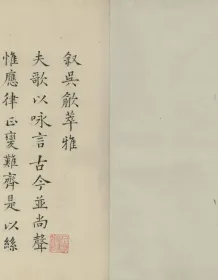 叙吳歈萃雅
夫歌以咏言古今並尚聲
惟應律正變難齊是以絲